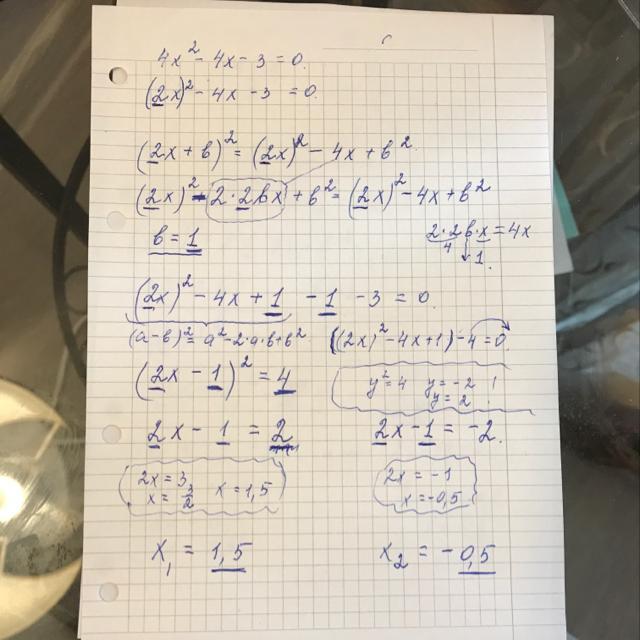 4x² - 4x - 3 = 0.
(2x)² - 4x - 3 = 0.
(2x + b)² = (2x)² - 4x + b²
(2x)² - 2·2bx + b² = (2x)² - 4x + b²
2·2b·x = 4x
4
1.
b = 1
(2x)² - 4x + 1 - 1 - 3 = 0.
(a-b)² = a² - 2·a·b + b²
((2x)² - 4x + 1) - 4 = 0.
(2x - 1)² = 4
y² = 4 y = -2 !
y = 2
2x - 1 = 2
2x - 1 = -2.
2x = 3
x = 3/2 x = 1,5
2x = -1
x = -0,5
x₁ = 1,5
x₂ = -0,5